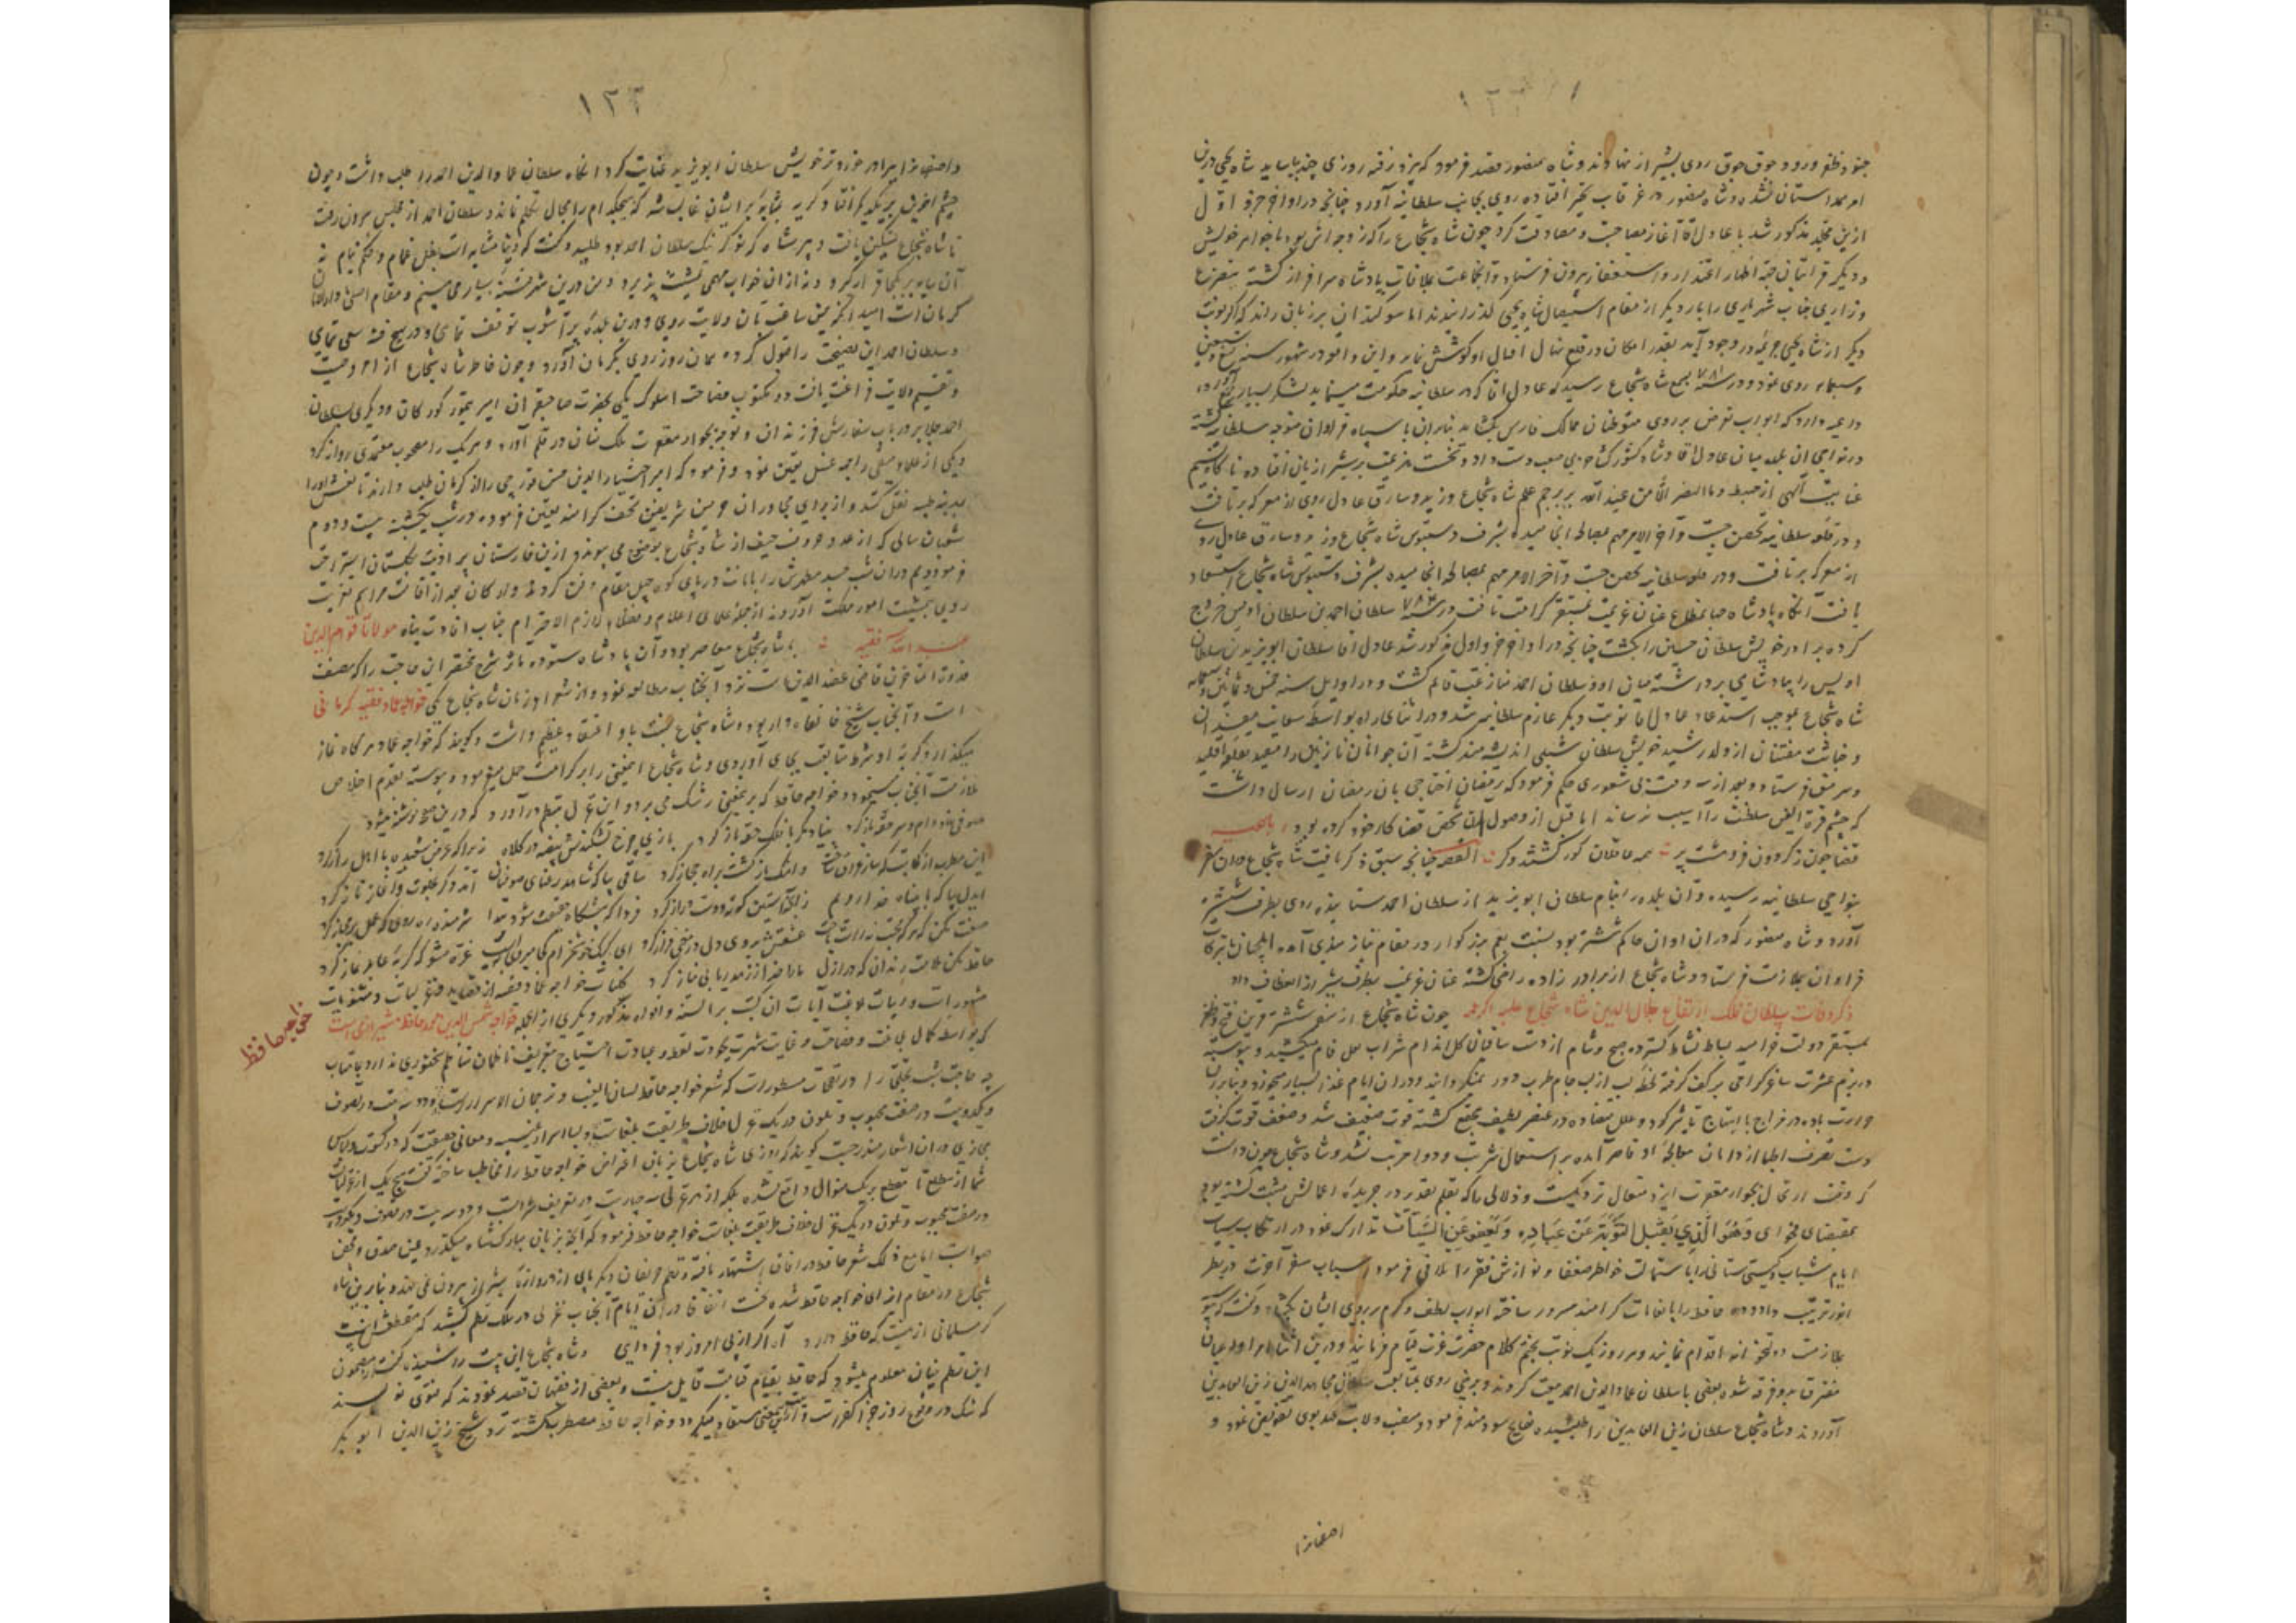 جنود ظفر ورود جوق جوق روی بشیراز نهادند و شاه منصور قصد فرمود که یزد رفته روزی چند بیاساید شاه یحیی درین
امر همداستان نشد و شاه منصور در غرقاب تحیر افتاده روی بجانب سلطانیه آورد چنانچه در اواخر جزو اول
ازین مجلد مذکور شد با عادل آقا آغاز مصاحبت و مصادقت کرد چون شاه شجاع را که زوجه اش بود با خواهر خویش
و دیگر قرابتان جهة اظهار اعتذار و استغفار بیرون فرستاد و آنجماعت بملاقات پادشاه سرافراز گشته بتضرع
و زاری جناب شهریاری را بار دیگر از مقام استیصال شاه یحیی گذرانیدند اما سوگند ان بر زبان راند که اگر نوبت
دیگر از شاه یحیی جریمه در وجود آید بقدر امکان در قلع نهال اقبال او کوشش نماید و این واقعه در شهور سنه تسع و سبعین
و سبعمایه روی نمود و در سنه ۷۸۱ بسمع شاه شجاع رسید که عادل اقا که در سلطانیه حکومت مینماید لشکر بسیار جمع آورده
داعیه دارد که ابواب تعرض بر روی متوطنان ممالک فارس بگشاید بنابران با سپاه فراوان متوجه سلطانیه گشته
در نواحی ان بلده میان عادل اقا و شاه کشورگشا حربی صعب دست داد و نخست هزیمت بر شیرازیان افتاده ناگاه نسیم
عنایت الهی از مهبط و ما النصر الا من عند الله بر پرچم علم شاه شجاع وزید و سارق عادل روی از معرکه برتافت
و در قلعه سلطانیه تحصن جست و آخر الامر مهم بمصالحه انجامیده بشرف دستبوس شاه شجاع وزید و سارق عادل روی
از معرکه برتافت و در قلعه سلطانیه تحصن جست و آخر الامر مهم بمصالحه انجامیده بشرف دستبوس شاه شجاع استسعاد
یافت آنگاه پادشاه صاحب اطلاع عنان عزیمت بمستقر کرامت تافت و در سنه ۷۸۴ سلطان احمد بن سلطان اویس خروج
کرده برادر خویش سلطان حسین را بکشت چنانچه در اواخر جزو اول مذکور شد عادل اقا سلطان ابویزید بن سلطان
اویس را بپادشاهی برداشته میان او و سلطان احمد منازعت قائم گشت و در اوایل سنه خمس و ثمانین و سبعمایه
شاه شجاع بموجب استدعاء عادل اقا نوبت دیگر عازم سلطانیه شد و در اثنای راه بواسطه سعایت مفسدان
و خباثت مفتنان از ولد رشید خویش سلطان شبلی اندیشه مند گشته آن جوانان نازنین را مقید بقلعه اقلید
و سرمق فرستاد و بعد از سه روز در بی شعوری حکم فرمود که
که چشم قرة العین سلطنت را آسیب نرساند اما قبل از وصول ان شخص قضا کار خود کرده بود رباعیه
قضا چون ز گردون فرو هشت پر همه عاقلان کور گشتند و کر القصه چنانچه سبق ذکر یافت شاه شجاع دران سفر
بنواحی سلطانیه رسیده و آن بلده را بنام سلطان ابویزید از سلطان احمد ستانیده روی بطرف ششتر
آورد و شاه منصور که دران اوان حاکم ششتر بود نسبت بعم بزرگوار در مقام نیازمندی آمده ایلچیان با تبرکات
فراوان بملازمت فرستاد و شاه شجاع از برادر زاده راضی گشته عنان عزیمت بطرف شیراز انعطاف داد
ذکر وفات سلطان فلک ارتفاع جلال الدین شاه شجاع علیه الرحمه چون شاه شجاع از سفر ششتر قرین فتح و ظفر
بمستقر دولت خرامید بساط نشاط گسترده صبح و شام از دست ساقیان گل اندام شراب لعل فام میکشید و پیوسته
در بزم عشرت ساغر گرامی بر کف گرفته لحظه لب از لب جام طرب دور نمیگردانید و دران ایام غذا بسیار میخورد و بنابران
حرارت باده در مزاج با ابتهاج تاثیر کرد و علل متضاده در عنصر لطیف مجتمع گشته قوت ضعیف شد و ضعف قوت گرفت
دست تصرف اطبا از دامان معالجه او قاصر آمده بر استعمال شربت و دوا مترتب نشد و شاه شجاع چون دانست
که وقت ارتحال بجوار مغفرت ایزد متعال نزدیکست
بمقتضای فحوای وهو الذی یقبل التوبة عن عباده ویعفو عن السیئات تدارک نمود در ارتکاب
ایام شباب و گیتی ستانی را باستمالت خواطر ضعفا و نوازش فقرا تلافی فرمود اسباب سفر آخرت در نظر
انور ترتیب داد و ده حافظ را بانعامات گرامند مسرور ساخته ابواب لطف و کرم بر روی ایشان بگشاد و گفت که پیوسته
بملازمت دولتخانه اقدام نمایند و هر روز یک نوبت بختم کلام حضرت عزت قیام فرمایند و درین اثنا امرا و اعیان
متفرق بدو فرقه شده بعضی با سلطان عماد الدین احمد بیعت کردند و برخی روی بمتابعت سلطان مجاهد الدین زین العابدین
آوردند و شاه شجاع سلطان زین العابدین را طلبیده نصایح سودمند فرمود و منصب ولایت عهد بوی تفویض نمود و
اصفهانرا
۱۲۲
و اصفهانرا ببرادر خردتر خویش سلطان ابویزید عنایت کرد انگاه سلطان عماد الدین احمد را طلب داشت و چون
چشم اخوین بر یکدیگر افتاد گریه بمثابه بر ایشان غالب شد که هیچکدام را مجال تکلم نماند و سلطان احمد از مجلس بیرون رفت
تا شاه شجاع تسکین یافت و پیر شاه که نوکر نیک سلطان احمد بود طلبید و گفت که دنیا مشابه است بظل غمام و حکم نیام نه
آن پایدار یکجا قرار گیرد و نه از ان خواب مهمی تمشیت پذیرد و من درین شهر فتنه بسیار می بینم و مقام اصلی و اوطان
کرمانست امید آنکه همین ساعت بآن ولایت روی و درین بلده پر آشوب توقف ننمایی و در تهییج فتنه سعی ننمایی
و سلطان احمد این نصیحت را قبول کرده همان روز روی بکرمان آورد و چون خاطر شاه شجاع از امر وصیت
و تقسیم ولایت فراغت یافت دو مکتوب فصاحت اسلوب یکی بحضرت صاحبقران امیر تیمور گورکان و دیگری بسلطان
احمد جلایر در باب سفارش فرزندان و توجه بجوار مغفرت ملک منان در قلم آورد و هر یک را مصحوب معتمدی روانه کرد
و یکی از علماء متقی را جهة غسل تعیین نمود و فرمود که امیر اختیار الدین حسن قورچی را از کرمان طلب دارند تا نعش او را
بمدینه طیبه نقل کند و از برای مجاوران حرمین شریفین تحف گرامند تعیین فرموده در شب یکشنبه بیست و دوم
شعبان سالی که از عدد حروف حیف از شاه شجاع بوضوح می پیوندد ازین خارستان پر اذیت بگلستان استراحت
فرمود و هم دران شب جسد مطهرش را بامانت در پای کوه چهل مقام دفن کردند و ارکان بعد از اقامت مراسم تعزیت
روی بتمشیت امور مملکت آوردند از جمله علمای اعلام و فضلاء لازم الاحترام جناب افادت پناه مولانا قوام الدین
عبد الله فقیه با شاه شجاع معاصر بود و آن پادشاه ستوده مآثر شرح مختصر ابن حاجب را که مصنف
قدوة المتاخرین قاضی عضد الدین است نزد آنجناب مطالعه نمود و از شعراء زمان شاه شجاع یکی خواجه عماد فقیه کرمانی
است و آنجناب شیخ خانقاه دار بود و شاه شجاع نسبت باو اعتقاد عظیم داشت و گویند که خواجه عماد هر گاه نماز
میگذارد گربه او شرط متابعت بجای آوردی و شاه شجاع اینمعنی را بر کرامت حمل میفرمود و پیوسته بقدم اخلاص
ملازمت آنجناب مینمود و خواجه حافظ که برینمعنی رشک می برد این غزل بنظم درآورد که درین صحیفه نوشته میشود
صوفی نهاد دام و سر حقه باز کرد بنیاد مکر با فلک حقه باز کرد بازی چرخ بشکندش بیضه در کلاه زیرا که عرض شعبده با اهل راز کرد
این مطرب از کجاست که ساز عراق ساخت و اهنگ بازگشت براه حجاز کرد ساقی بیا که شاهد رعنای صوفیان آمد دگر بجلوه و آغاز ناز کرد
ایدل بیا که ما بپناه خدا رویم زانچه آستین کوته و دست دراز کرد فردا که پیشگاه حقیقت شود پدید شرمنده رهروی که عمل بر مجاز کرد
صنعت مکن که هر که محبت نه راست باخت عشقش بروی دل در معنی فراز کرد ای کبک خوشخرام کجا میروی بایست غره مشو که گربه عابد نماز کرد
حافظ مکن ملامت رندان که در ازل ما را خدا ز زهد ریا بی نیاز کرد کلیات خواجه عماد فقیه از قصاید و غزلیات و مثنویات
مشهور است و ابیات بلاغت آیات ان کتب بر السنه و افواه مذکور و دیگری ازانجمله خواجه شمس الدین محمد حافظ شیرازی است
خواجه حافظ
که بواسطه کمال بلاغت و فصاحت و غایت شهرت بجودت لفظ و عبارت احتیاج بتعریف ناظمان مناظم سخنوری ندارد بماهتاب
چه حاجت شب تجلی را در نفحات مسطور است که شعر خواجه حافظ لسان الغیب و ترجمان الاسرار است
بمجاز ی دران اشعار مندرجست گویند که روزی شاه شجاع بزبان اعتراض خواجه حافظ را مخاطب ساخته گفت هیچ یک از غزلیات
شما از مطلع تا مقطع بر یک منوال واقع نشده بلکه از هر غزلی سه چهار بیت در تعریف شرابست و دو سه بیت در تصوف و یکدو بیت
در صفت محبوب و تلون در یک غزل خلاف طریقت بلغاست خواجه حافظ فرمود که آنچه بر زبان مبارک شاه میگذرد عین صدق و محض
صوابست اما مع ذلک شعر حافظ در افاق اشتهار یافته و نظم حریفان دیگر پای از دروازه شیراز بیرون نمی نهد و بنابرین شاه
شجاع در مقام ایذای خواجه حافظ شده بحسب اتفاق دران ایام آنجناب غزلی در سلک نظم کشید که مقطعش اینست
گر مسلمانی ازینست که حافظ دارد آه اگر از پی امروز بود فردایی و شاه شجاع این بیت را شنیده گفت از مضمون
این نظم چنان معلوم میشود که حافظ بقیام قیامت قایل نیست و بعضی از فقیهان قصد نمودند که فتوی نویسند
که شک در وقوع روز جزا کفر است و ازین بیت اینمعنی مستفاد میگردد و خواجه حافظ مضطرب گشته نزد شیخ زین الدین ابوبکر